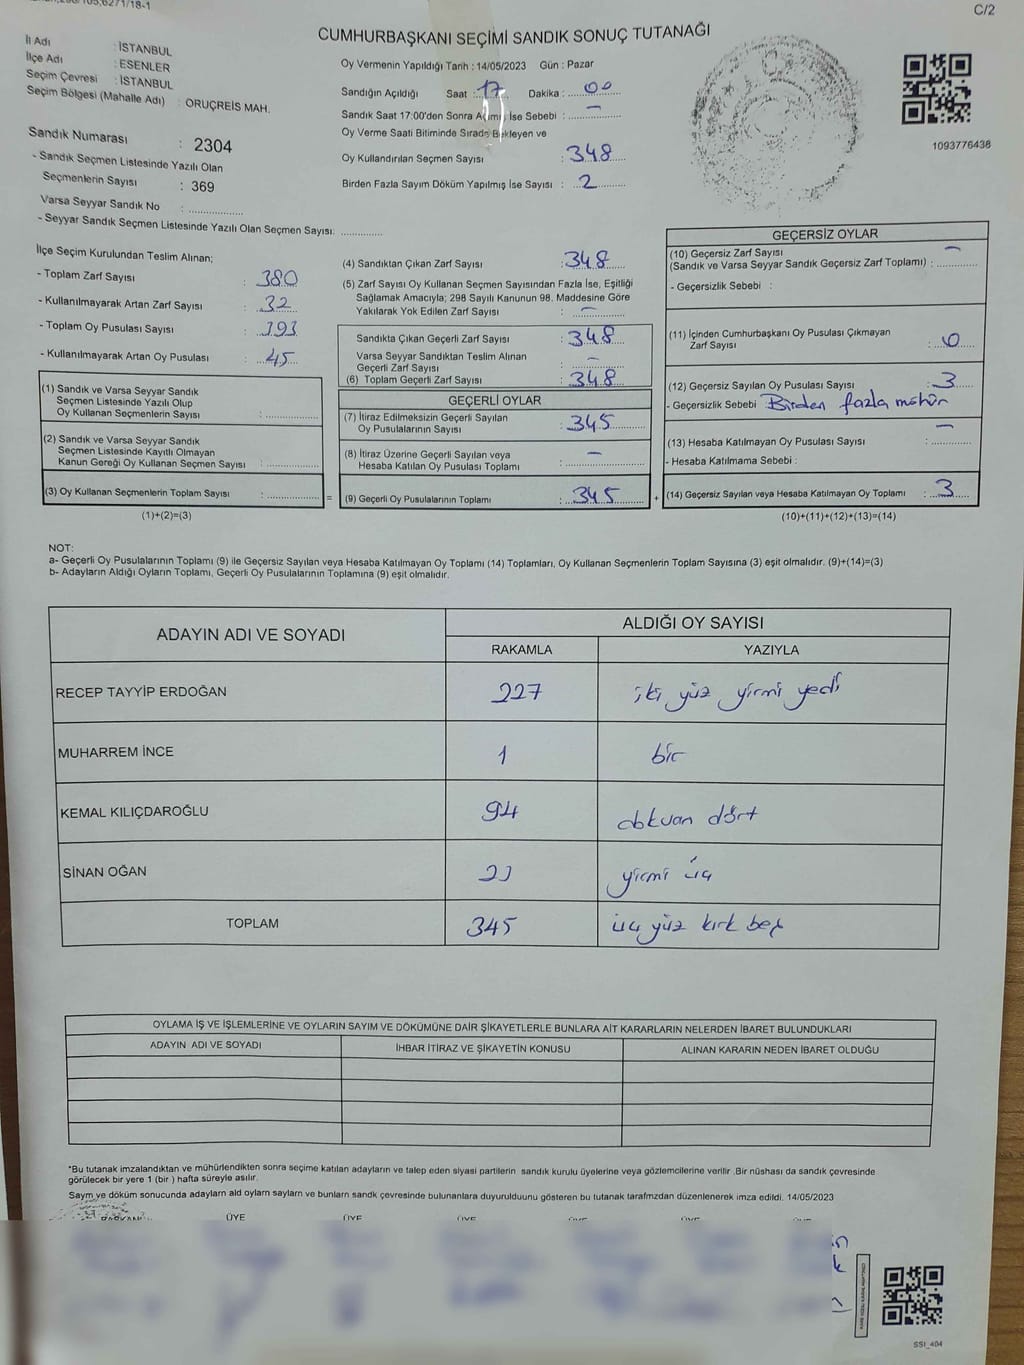 C/2
CUMHURBAŞKANI SEÇİMİ SANDIK SONUÇ TUTANAĞI
İl Adı : İSTANBUL
İlçe Adı : ESENLER
Seçim Çevresi : İSTANBUL
Seçim Bölgesi (Mahalle Adı) : ORUÇREİS MAH.
Sandık Numarası : 2304
- Sandık Seçmen Listesinde Yazılı Olan
Seçmenlerin Sayısı : 369
Varsa Seyyar Sandık No : ..................
- Seyyar Sandık Seçmen Listesinde Yazılı Olan Seçmen Sayısı: ..............
Oy Vermenin Yapıldığı Tarih : 14/05/2023 Gün : Pazar
Sandığın Açıldığı Saat : 17 Dakika : 00
Sandık Saat 17:00'den Sonra Açılmış İse Sebebi : –
Oy Verme Saati Bitiminde Sırada Bekleyen ve
Oy Kullandırılan Seçmen Sayısı 348
Birden Fazla Sayım Döküm Yapılmış İse Sayısı : 2
1093776438
İlçe Seçim Kurulundan Teslim Alınan;
- Toplam Zarf Sayısı : 380
- Kullanılmayarak Artan Zarf Sayısı : 32
- Toplam Oy Pusulası Sayısı : 393
- Kullanılmayarak Artan Oy Pusulası : 45
(1) Sandık ve Varsa Seyyar Sandık
Seçmen Listesinde Yazılı Olup
Oy Kullanan Seçmenlerin Sayısı : ..............
(2) Sandık ve Varsa Seyyar Sandık
Seçmen Listesinde Kayıtlı Olmayan
Kanun Gereği Oy Kullanan Seçmen Sayısı : ..............
(3) Oy Kullanan Seçmenlerin Toplam Sayısı : .............. =
(1)+(2)=(3)
(4) Sandıktan Çıkan Zarf Sayısı : 348
(5) Zarf Sayısı Oy Kullanan Seçmen Sayısından Fazla İse, Eşitliği
Sağlamak Amacıyla; 298 Sayılı Kanunun 98. Maddesine Göre
Yakılarak Yok Edilen Zarf Sayısı : –
Sandıkta Çıkan Geçerli Zarf Sayısı : 348
Varsa Seyyar Sandıktan Teslim Alınan
Geçerli Zarf Sayısı : –
(6) Toplam Geçerli Zarf Sayısı : 348
GEÇERLİ OYLAR
(7) İtiraz Edilmeksizin Geçerli Sayılan
Oy Pusulalarının Sayısı : 345
(8) İtiraz Üzerine Geçerli Sayılan veya
Hesaba Katılan Oy Pusulası Toplamı : –
(9) Geçerli Oy Pusulalarının Toplamı : 345 +
GEÇERSİZ OYLAR
(10) Geçersiz Zarf Sayısı
(Sandık ve Varsa Seyyar Sandık Geçersiz Zarf Toplamı) : –
- Geçersizlik Sebebi :
(11) İçinden Cumhurbaşkanı Oy Pusulası Çıkmayan
Zarf Sayısı : 0
(12) Geçersiz Sayılan Oy Pusulası Sayısı : 3
- Geçersizlik Sebebi Birden fazla mühür
(13) Hesaba Katılmayan Oy Pusulası Sayısı : –
- Hesaba Katılmama Sebebi :
(14) Geçersiz Sayılan veya Hesaba Katılmayan Oy Toplamı : 3
(10)+(11)+(12)+(13)=(14)
NOT:
a- Geçerli Oy Pusulalarının Toplamı (9) ile Geçersiz Sayılan veya Hesaba Katılmayan Oy Toplamı (14) Toplamları, Oy Kullanan Seçmenlerin Toplam Sayısına (3) eşit olmalıdır. (9)+(14)=(3)
b- Adayların Aldığı Oyların Toplamı, Geçerli Oy Pusulalarının Toplamına (9) eşit olmalıdır.
ADAYIN ADI VE SOYADI ALDIĞI OY SAYISI
RAKAMLA YAZIYLA
RECEP TAYYİP ERDOĞAN 227 iki yüz yirmi yedi
MUHARREM İNCE 1 bir
KEMAL KILIÇDAROĞLU 94 doksan dört
SİNAN OĞAN 23 yirmi üç
TOPLAM 345 üç yüz kırk beş
OYLAMA İŞ VE İŞLEMLERİNE VE OYLARIN SAYIM VE DÖKÜMÜNE DAİR ŞİKAYETLERLE BUNLARA AİT KARARLARIN NELERDEN İBARET BULUNDUKLARI
ADAYIN ADI VE SOYADI İHBAR İTİRAZ VE ŞİKAYETİN KONUSU ALINAN KARARIN NEDEN İBARET OLDUĞU
*Bu tutanak imzalandıktan ve mühürlendikten sonra seçime katılan adayların ve talep eden siyasi partilerin sandık kurulu üyelerine veya gözlemcilerine verilir .Bir nüshası da sandık çevresinde
görülecek bir yere 1 (bir ) hafta süreyle asılır.
Sayım ve döküm sonucunda adayların ald oyların sayların ve bunların sandk çevresinde bulunanlara duyurulduunu gösteren bu tutanak tarafmzdan düzenlenerek imza edildi. 14/05/2023
BAŞKAN ÜYE ÜYE ÜYE ÜYE ÜYE ÜYE
SSI_404